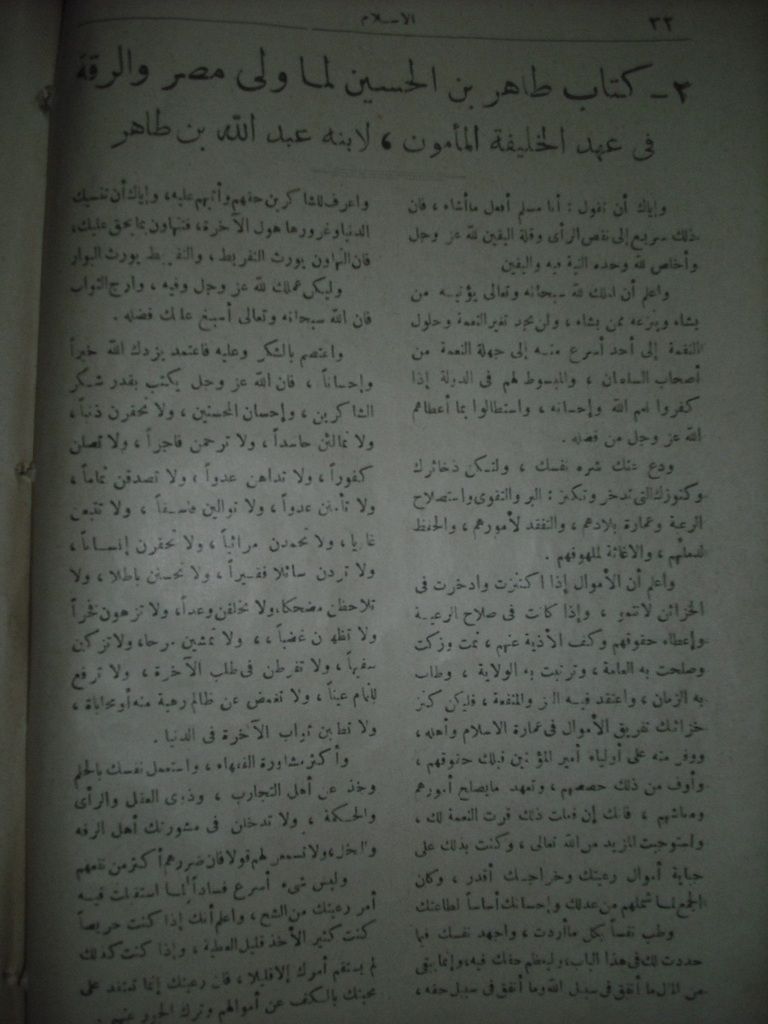 ٣٢
الاسلام
٢ - كتاب طاهر بن الحسين لما ولى مصر والرقة
فى عهد الخليفة المأمون ، لابنه عبد الله بن طاهر
وإياك أن تقول : أنا مسلم أفعل ماأشاء ، فان
ذلك سريع إلى نقص الرأى وقلة اليقين لله عز وجل
وأخلص لله وحده النية فيه واليقين
واعلم أن الملك لله سبحانه وتعالى يؤتيه من
يشاء وينزعه ممن يشاء ، ولن تجد تغير النعمة وحلول
النقمة إلى أحد أسرع منه إلى جهلة النعمة من
أصحاب السلطان ، والمبسوط لهم فى الدولة إذا
كفروا نعم الله وإحسانه ، واستطالوا بما أعطاهم
الله عز وجل من فضله .
ودع عنك شره نفسك ، ولتكن ذخائرك
وكنوزك التى تدخر وتكنز : البر والتقوى واستصلاح
الرعية وعمارة بلادهم ، والتفقد لأمورهم ، والحفظ
لدمائهم ، والاغاثة لملهوفهم .
واعلم أن الأموال إذا اكتنزت وادخرت فى
الخزائن لاتنمو ، وإذا كانت فى صلاح الرعية
وإعطاء حقوقهم وكف الأذية عنهم ، نمت وزكت
وصلحت به العامة ، وترتبت به الولاية ، وطاب
به الزمان ، واعتقد فيه العز والمنفعة ، فليكن كنز
خزائنك تفريق الأموال فى عمارة الاسلام وأهله ،
ووفر منه على أولياء أمير المؤمنين قبلك حقوقهم ،
وأوف من ذلك حصصهم ، وتعهد مايصلح أمورهم
ومعاشهم ، فانك إن فعلت ذلك قرت النعمة لك ،
واستوجبت المزيد من الله تعالى ، وكنت بذلك على
جباية أموال رعيتك وخراجك أقدر ، وكان
الجمع لما شملهم من عدلك وإحسانك أساساً لطاعتك
وطب نفساً بكل ماأردت ، واجهد نفسك فيما
حددت لك فى هذا الباب، وليعظم حقك فيه، وإنما يبقى
من المال ما أنفق فى سبيل الله وما أنفق فى سبيل حقه ،
واعرف للشاكرين حقهم وأثبهم عليه، وإياك أن تنسيك
الدنيا وغرورها هول الآخرة، فتتهاون بما يحق عليك،
فان التهاون يورث التفريط ، والتفريط يورث البوار
وليكن عملك لله عز وجل وفيه ، وارج الثواب
فان الله سبحانه وتعالى أسبغ عليك فضله .
واعتصم بالشكر وعليه فاعتمد يزدك الله خيراً
وإحساناً ، فان الله عز وجل يكتب بقدر شكر
الشاكرين ، وإحسان المحسنين ، ولا تحقرن ذنباً ،
ولا تمالئن حاسداً ، ولا ترحمن فاجراً ، ولا تصلن
كفوراً ، ولا تداهن عدواً ، ولا تصدقن نماماً ،
ولا تأمنن عدواً ، ولا توالين فاسقاً ، ولا تتبعن
غاويا ، ولا تحمدن مرائياً ، ولا تحقرن إنساناً ،
ولا تردن سائلا فقيراً ، ولا تحسنن باطلا ، ولا
تلاحظن مضحكا، ولا تخلفن وعداً، ولا تزهون فخراً
ولا تظهرن غضباً ، ، ولا تمشين مرحا، ولا تزكين
سفيهاً ، ولا تفرطن فى طلب الآخرة ، ولا ترفع
للنمام عيناً ، ولا تغمض عن ظالم رهبة منه أو محاباة ،
ولا تطلبن ثواب الآخرة فى الدنيا .
وأكثر مشاورة الفقهاء ، واستعمل نفسك بالحلم
وخذ عن أهل التجارب ، وذوى العقل والرأى
والحكمة ، ولا تدخلن فى مشورتك أهل الرفه
والبخل، ولا تسمعن لهم قولا فان ضررهم أكثر من نفعهم
وليس شىء أسرع فساداً لما استقبلت فيه
أمر رعيتك من الشح ، واعلم أنك إذا كنت حريصاً
كنت كثير الأخذ قليل العطية ، وإذا كنت كذلك
لم يستقم أمرك إلا قليلا ، فان رعيتك إنما تعتقد على
محبتك بالكف عن أموالهم وترك الجور عنهم .